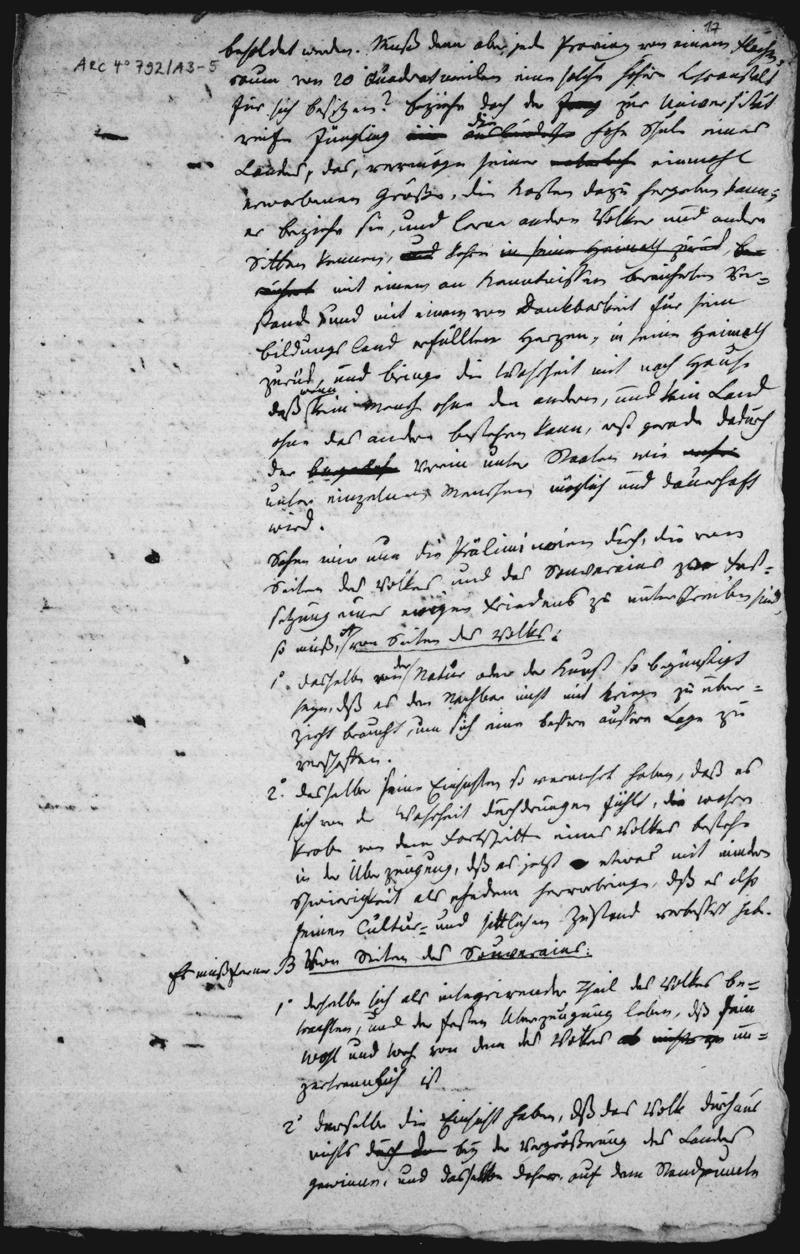 17
ARC 4° 792/A3-5
besoldet werden. Muß denn aber jede Provinz von einem Flächen-
raum von 20 Quadratmeilen eine solche hohe Lehranstalt
für sich besitzen? beziehe doch der zur Universität
reife Jüngling die hohe Schule eines
Landes, das, vermöge seiner einmahl
erworbenen Größe, die Kosten dazu hergeben kann;
er beziehe sie, und lerne andere Völker und andere
Sitten kennen, und kehre in seine Heimath zurück, be-
reichert mit einem an Kenntnissen bereicherten Ver-
stand und mit einem von Dankbarkeit für sein
bildungsland erfüllten Herzen, in seine Heimath
zurück, und bringe die Wahrheit mit nach Hause
daß wenn kein Mensch ohne den andern, und kein Land
ohne das andere bestehen kann, erst gerade dadurch
der Verein unter Staaten wie
unter einzelnen Menschen möglich und dauerhaft
wird.
Sehen wir nun die Präliminarien durch, die von
Seiten des Volkes und des Souverains zur Fest-
setzung eines ewigen Friedens zu unterschreiben sind,
so muß, A von Seiten des Volks:
1°. dasselbe von der Natur oder der Kunst so begünstigt
seyn, daß es den Nachbar nicht mit Kriege zu über-
zieht braucht, um sich eine bessere äußere Lage zu
verschaffen.
2° dasselbe seine Einsichten so vermehrt haben, daß es
sich von der Wahrheit durchdrungen fühlt, die wahre
Probe von dem Fortschritte eines Volkes bestehe
in der Überzeugung, daß es jetzt etwas mit minderer
Schwierigkeit als ehedem hervorbringe, daß es also
seinen Cultur- und sittlichen Zustand verbessert habe.
Es muß ferner B Von Seiten des Souverains:
1° derselbe sich als integrirender Theil des Volkes be-
trachten, und der festen Überzeugung leben, daß sein
Wohl und Weh von dem des Volkes un-
zertrennlich ist
2° derselbe die Einsicht haben, daß das Volk durchaus
nichts durch die bey der Vergrößerung des Landes
gewinne, und dasselbe daher, auf dem Standpuncte